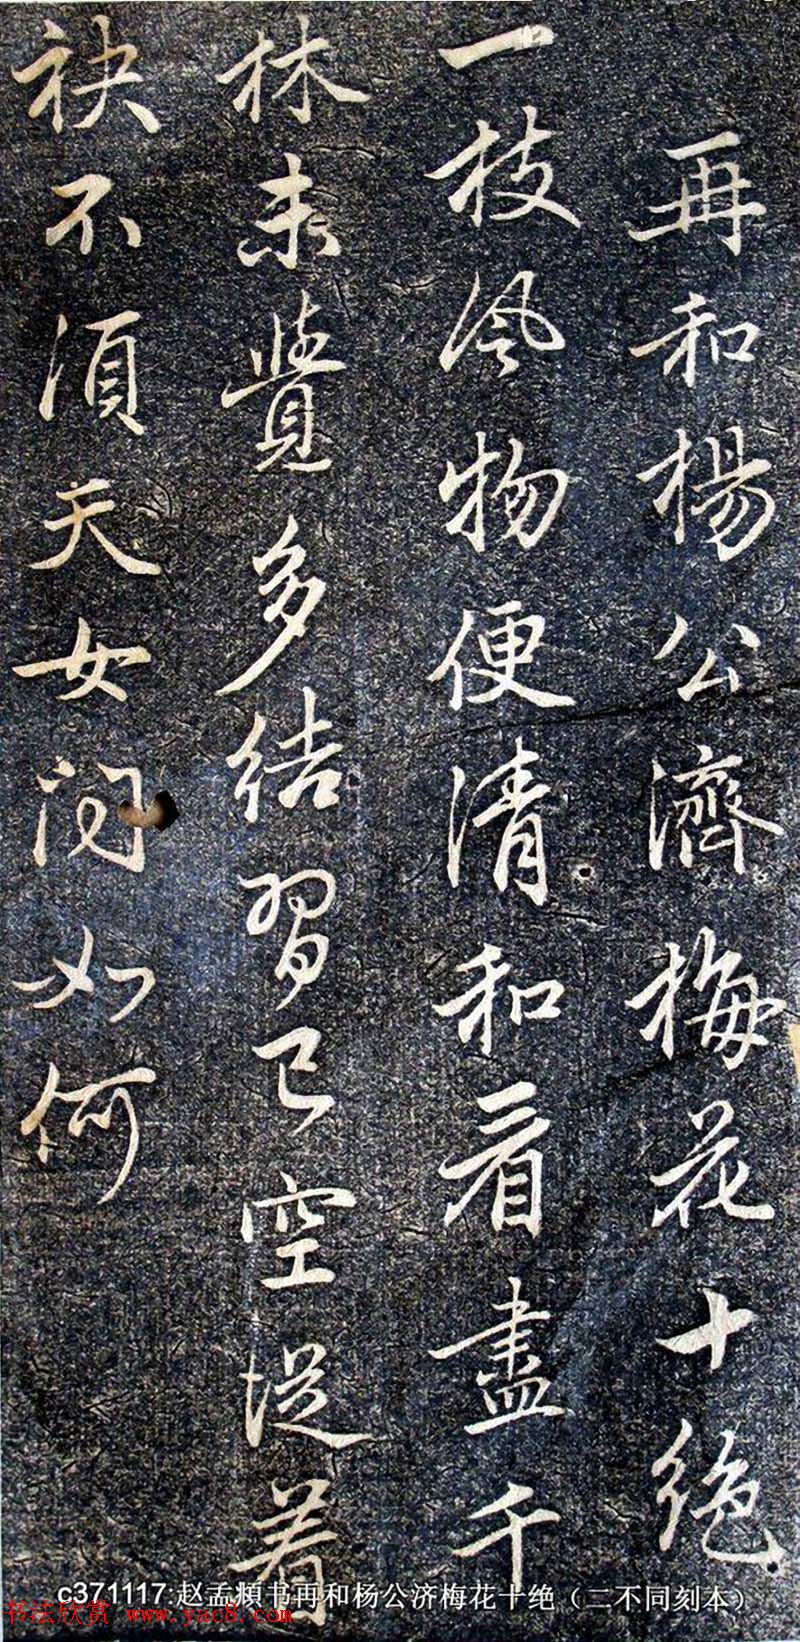 再和楊公濟梅花十绝
一枝风物便清和看盡千
林未覺多結習已空従着
袂不須天女问如何
c371117:赵孟頫书再和杨公济梅花十绝（二不同刻本）
书法欣赏 www.yac8.com